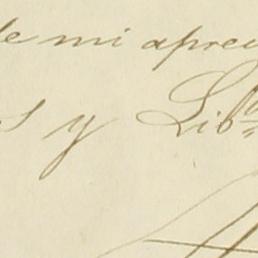 de mi aprec
s y Lib